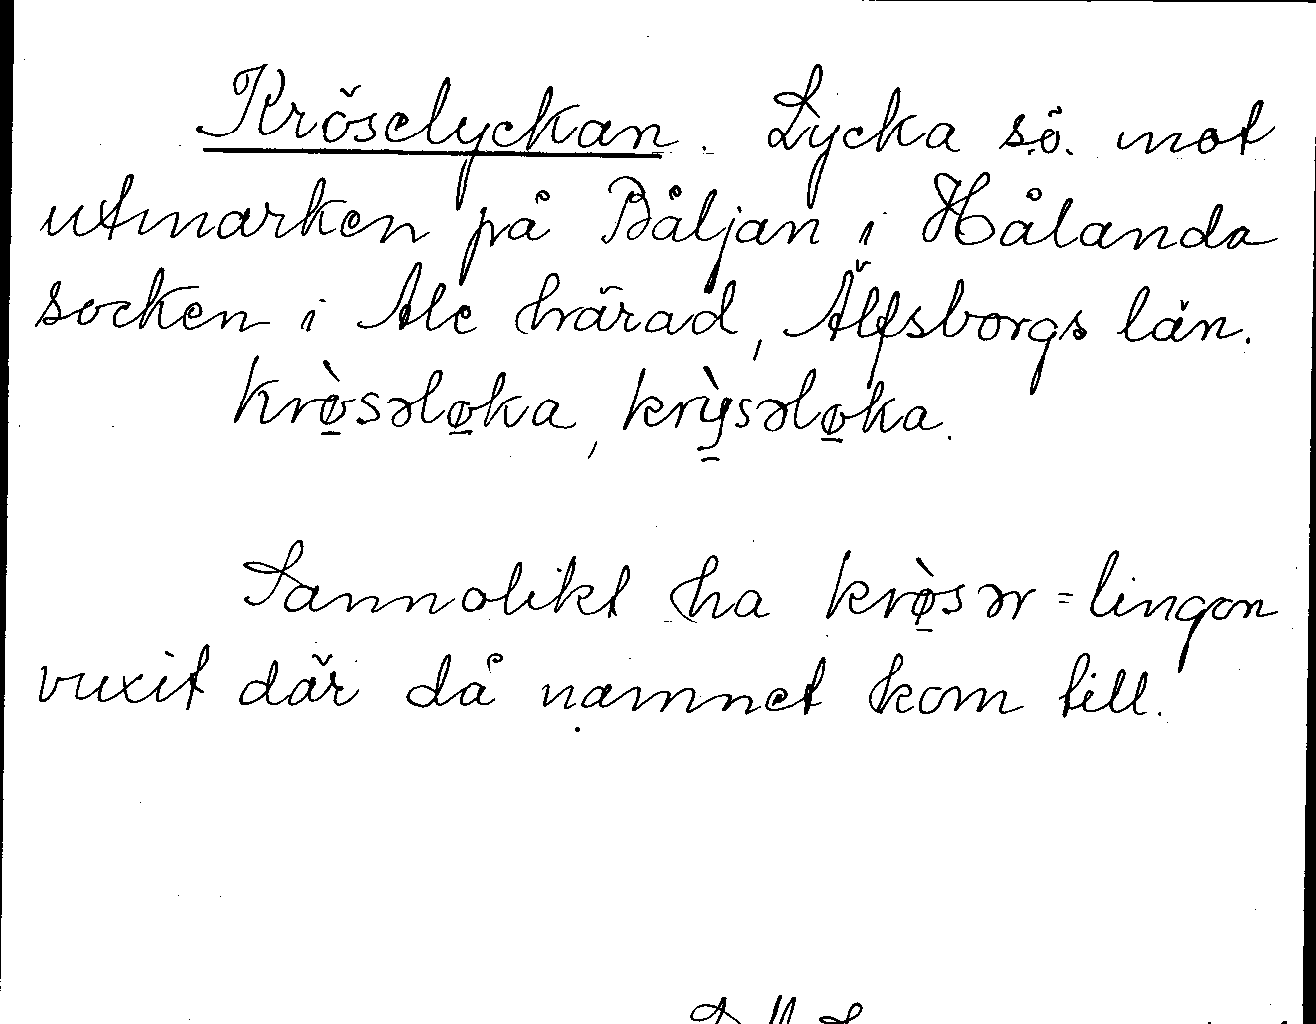 Kröselyckan. Lycka s.ö. mot
utmarken på Båljan i Hålanda
socken i Ale härad, Älfsborgs län.
krø̀səløka, krỳsəløka.
Sannolikt ha krø̀sər = lingon
vuxit där då namnet kom till.